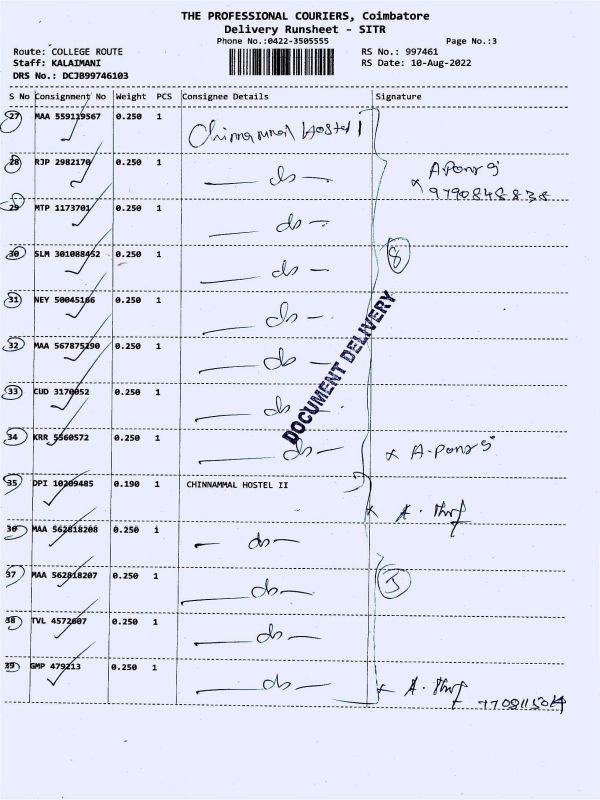 THE PROFESSIONAL COURIERS, Coimbatore
Delivery Runsheet - SITR
Phone No.:0422-3505555 Page No.:3
Route: COLLEGE ROUTE RS No.: 997461
Staff: KALAIMANI RS Date: 10-Aug-2022
DRS No.: DCJB99746103
S No Consignment No Weight PCS Consignee Details Signature
27 MAA 559119567 0.250 1 Chinnammal Hostel I
28 RJP 2982170 0.250 1 do
9790848838
29 MTP 1173701 0.250 1 do
30 SLM 301088452 0.250 1 do 8
31 NEY 50045166 0.250 1 do
32 MAA 567875290 0.250 1 do
DOCUMENT DELIVERY
33 CUD 3170052 0.250 1 do
34 KRR 5560572 0.250 1 do
35 DPI 10209485 0.190 1 CHINNAMMAL HOSTEL II
36 MAA 562818208 0.250 1 do
37 MAA 562818207 0.250 1 do 5
38 TVL 4572607 0.250 1 do
39 GMP 479213 0.250 1 do